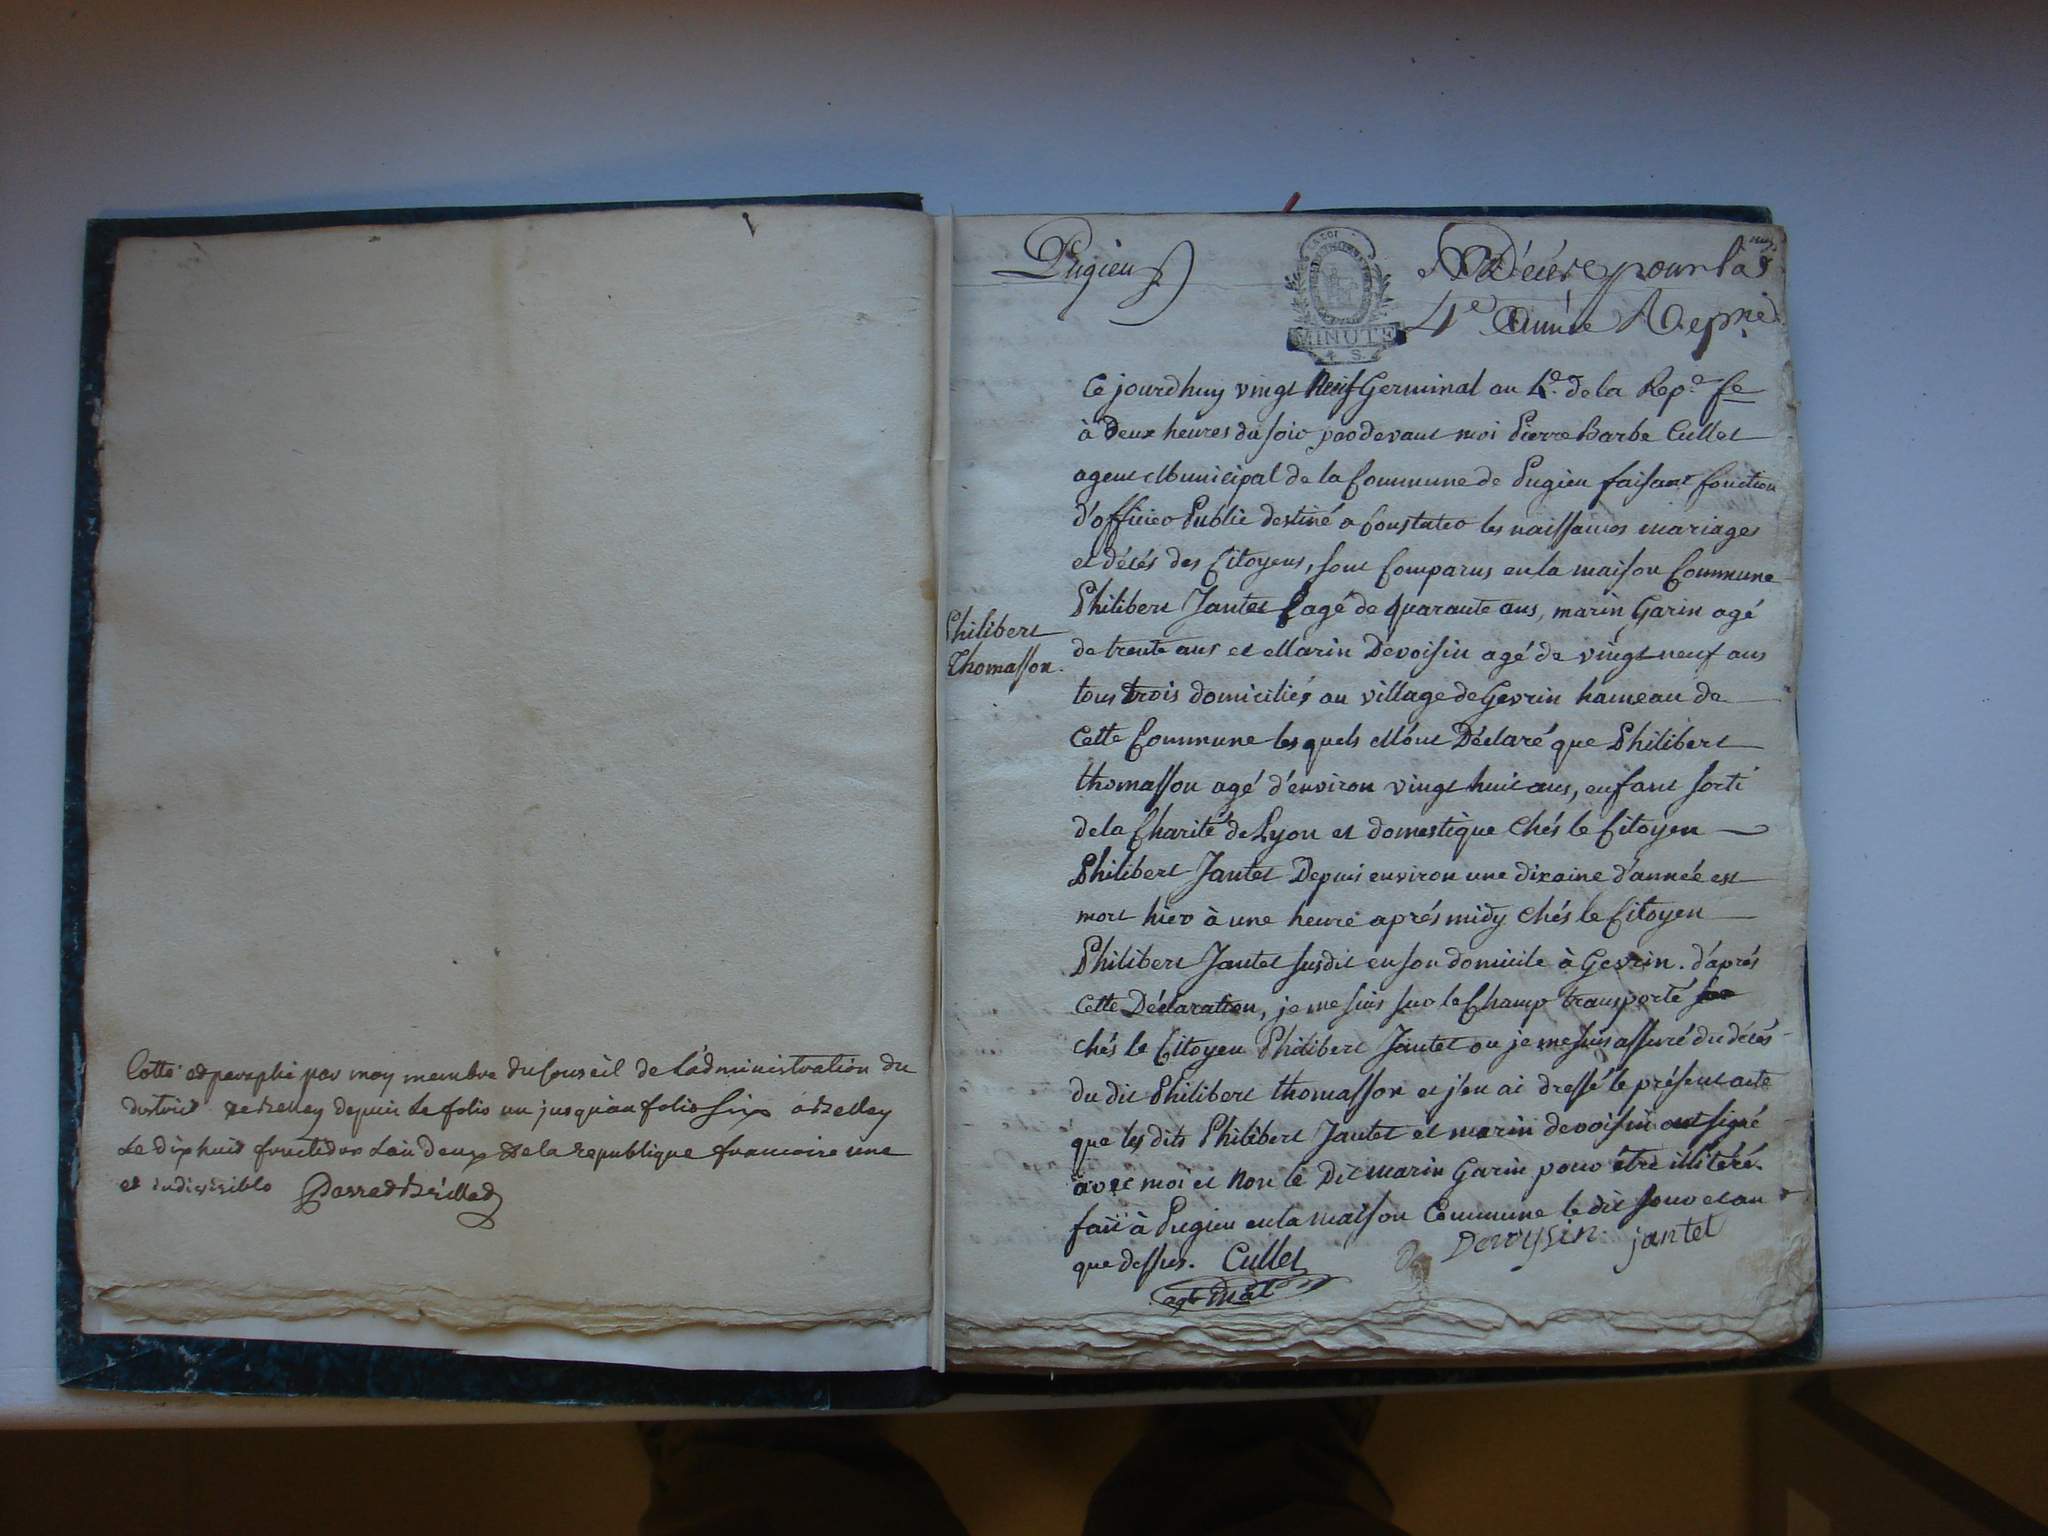 Cotté et paraphé par moy membre du Conseil de l'administration du
district de Belley depuis le folio un jusqu'au folio Six a Belley
Le dix huit fructidor L'an deux de la republique francoise une
et indivisible
Pugieu
LA LOI
MINUTE
4. S.
Décés pour la
4e Année Repne
Ce jourdhuy vingt Neuf Germinal an 4e. de la Repe. fe
à Deux heures du soir par devant moi Pierre Barbe Cullet
agent Municipal de la Commune de Pugieu faisant fonction
d'officier Public destiné a Constater les naissances mariages
et décés des Citoyens, sont Comparus en la maison Commune
Philibert Jantet agé de quarante ans, marin Garin agé
de trente ans et Marin Devoisin agé de vingt neuf ans
tous trois domiciliés au village de Gevrin hameau de
Cette Commune les quels M'ónt Déclaré que Philibert
Philibert
Thomasson.
thomasson agé d'environ vingt huit ans, enfant sorti
de la Charité de Lyon et domestique Chés le Citoyen
Philibert Jantet Depuis environ une dixaine d'année est
mort hier à une heure aprés midy Chés le Citoyen
Philibert Jantet susdit en son domicile à Gevrin. d'aprés
Cette Déclaration, je me suis sur le Champ transporté
chés le Citoyen Philibert Jantet ou je me suis assuré du décés
du dit Philibert thomasson et j'en ai dressé le présent acte
que les dits Philibert Jantet et marin devoisin ont signé
avec moi et Non le Dit marin Garin pour être illitéré.
fait à Pugieu en la maison Commune le dit Jour et an
que dessus. Cullet Devoysin jantet
agt mal